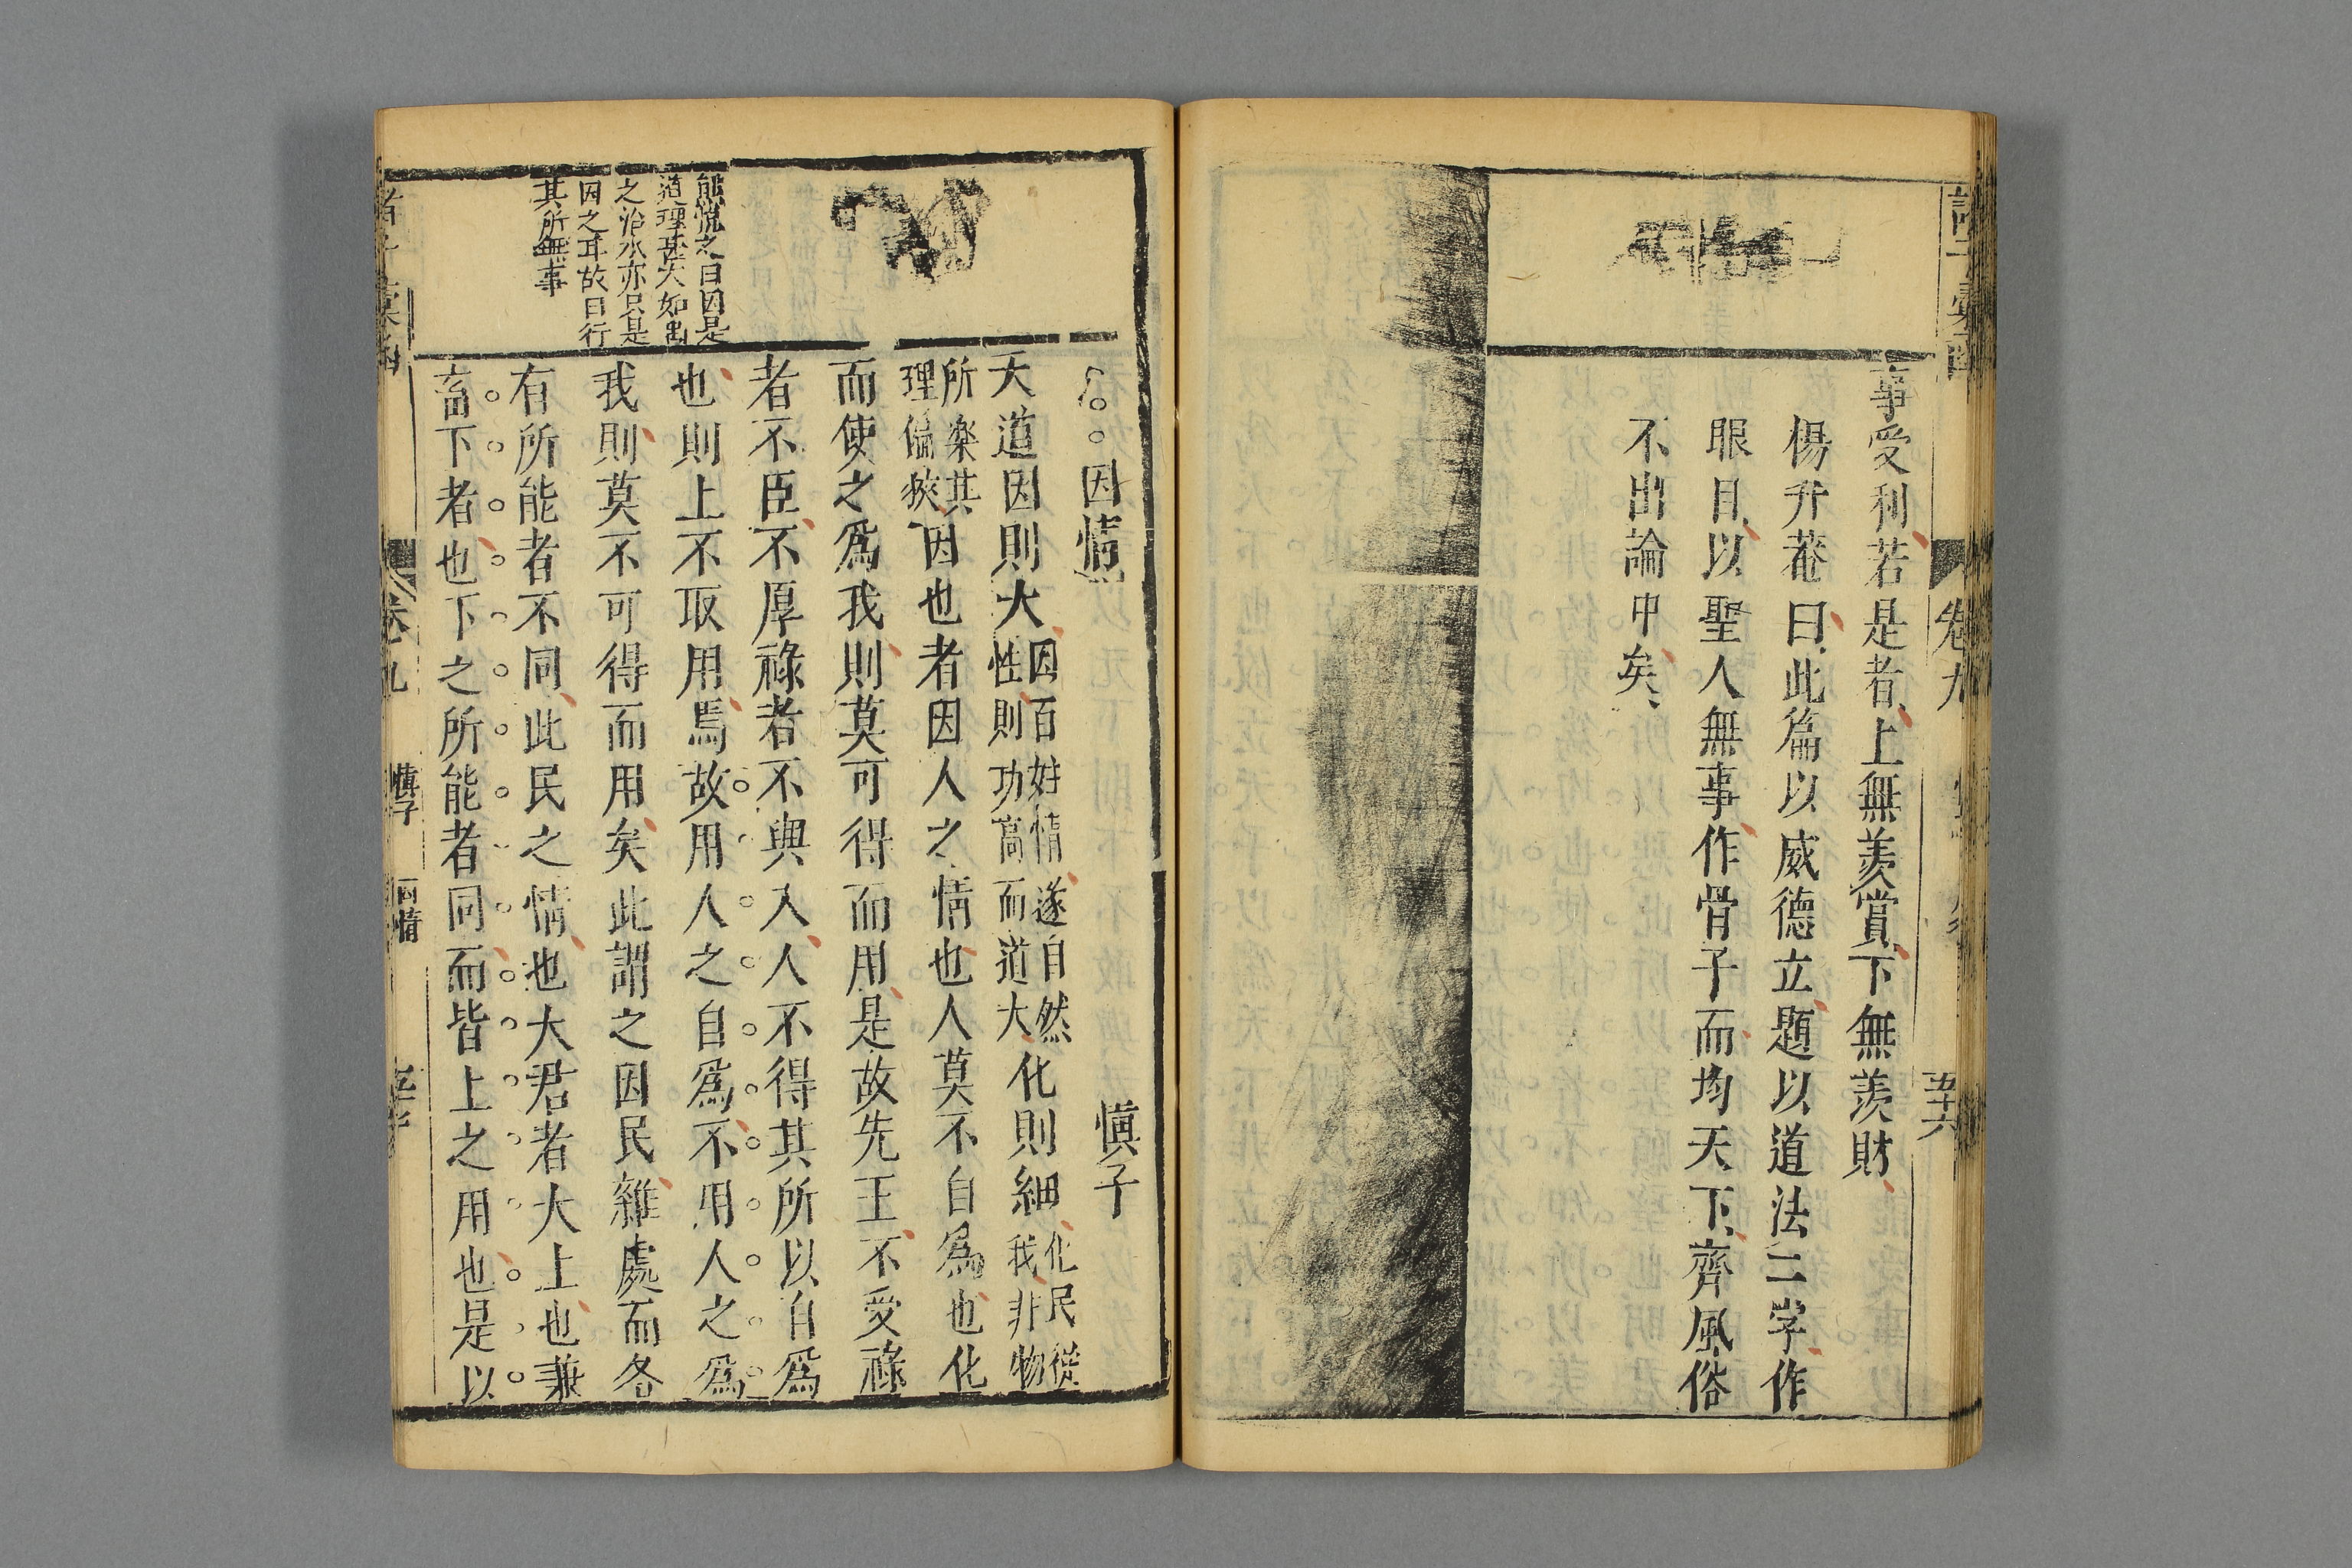 事受利若是者上無羨賞下無羨財
楊升菴曰此篇以威德立題以道法二字作
眼目以聖人無事作骨子而均天下齊風俗
不出論中矣
卷九
五十六
因情
慎子
天道因則大因百姓情遂自然性則功高而道大化則細化民從我非物
所樂其理偏狹因也者因人之情也人莫不自爲也化
而使之爲我則莫可得而用是故先王不受祿
者不臣不厚祿者不與入人不得其所以自爲
也則上不取用焉故用人之自爲不用人之爲
我則莫不可得而用矣此謂之因民雜處而各
有所能者不同此民之情也大君者大上也兼
畜下者也下之所能者同而皆上之用也是以
熊悅之曰因是
道理甚大如禹
之治水亦只是
因之耳故曰行
其所無事
卷九
慎子
因情